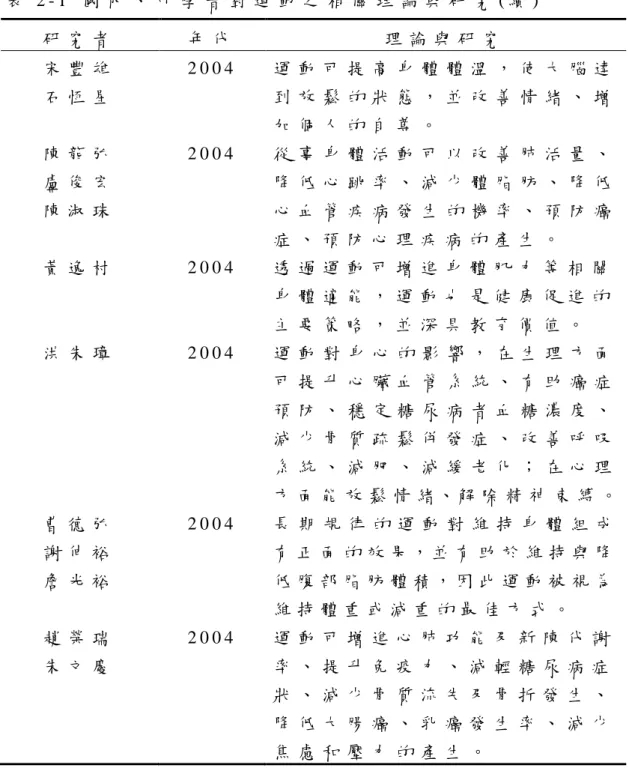 表 2-1 國內、外學者對運動之相關理論與研究(續)
研究者 年代 理論與研究
宋豐雄 2004 運動可提高身體體溫，使大腦達
石恆星 到放鬆的狀態，並改善情緒、增
加個人的自尊。
陳龍弘 2004 從事身體活動可以改善肺活量、
盧俊宏 降低心跳率、減少體脂肪、降低
陳淑珠 心血管疾病發生的機率、預防癌
症、預防心理疾病的產生。
黃逸村 2004 透過運動可增進身體肌力等相關
身體適能，運動也是健康促進的
主要策略，並深具教育價值。
洪朱璋 2004 運動對身心的影響，在生理方面
可提升心臟血管系統、有助癌症
預防、穩定糖尿病者血糖濃度、
減少骨質疏鬆併發症、改善呼吸
系統、減肥、減緩老化；在心理
方面能放鬆情緒、解除精神束縛。
曹德弘 2004 長期規律的運動對維持身體組成
謝伸裕 有正面的效果，並有助於維持與降
詹光裕 低腹部脂肪體積，因此運動被視為
維持體重或減重的最佳方式。
趙榮瑞 2004 運動可增進心肺功能及新陳代謝
朱文慶 率、提升免疫力、減輕糖尿病症
狀、減少骨質流失及骨折發生、
降低大腸癌、乳癌發生率、減少
焦慮和壓力的產生。